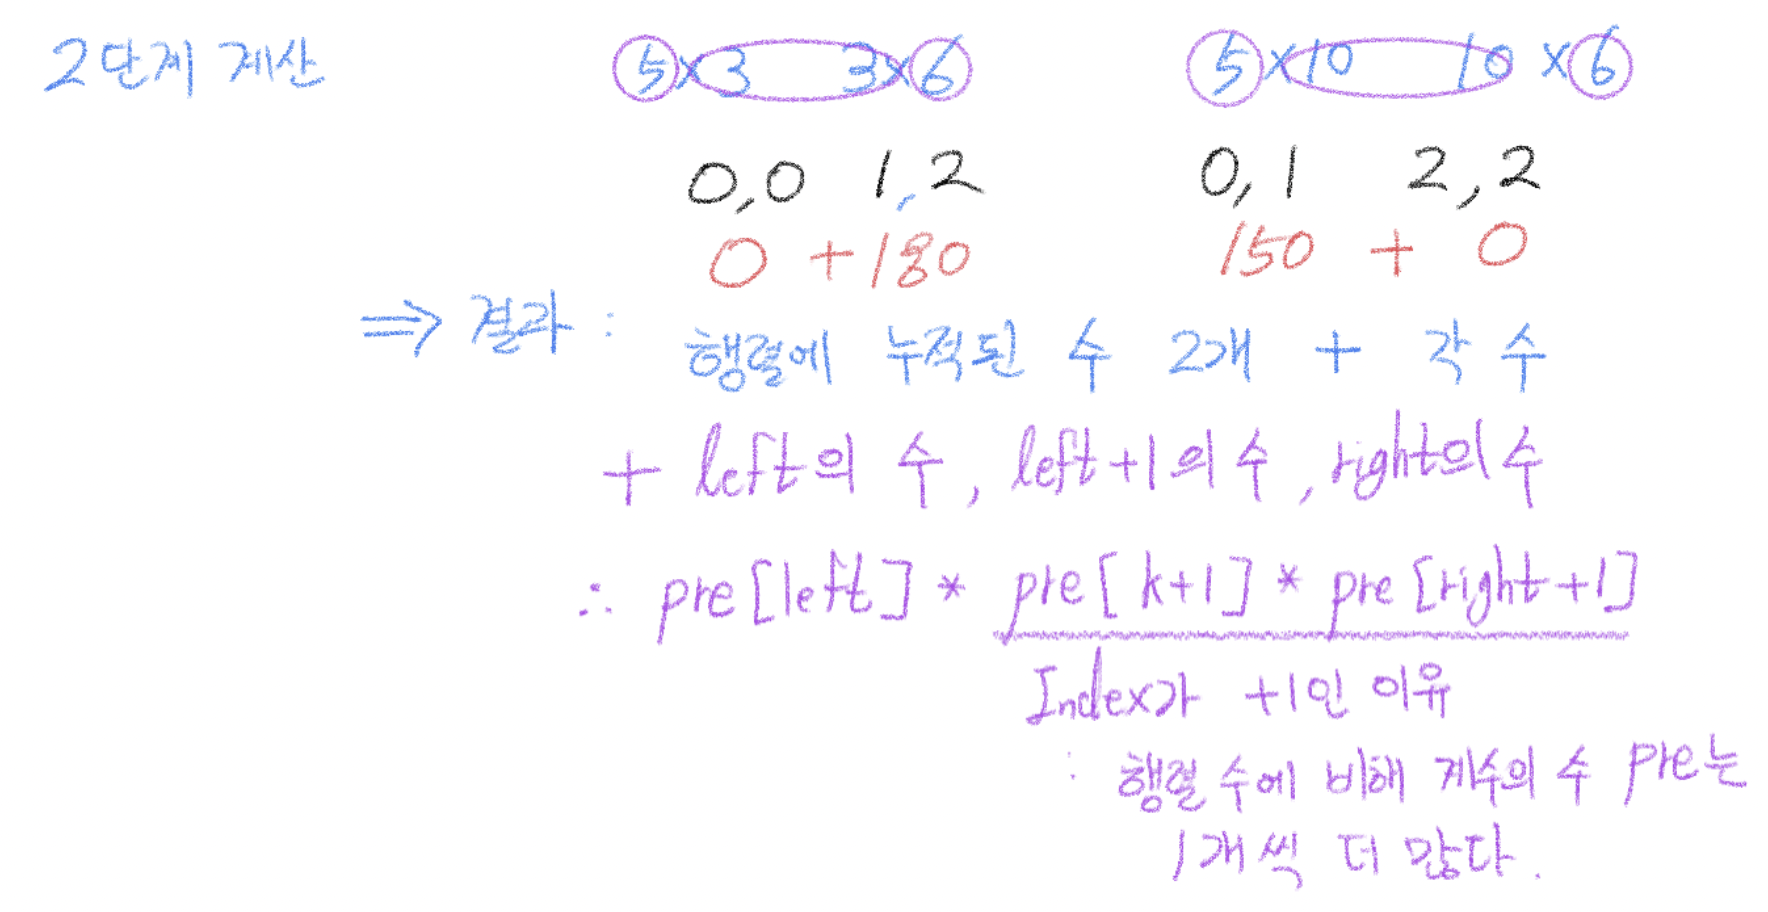 2단계 계산 5×3 3×6 5×10 10×6
0,0 1,2 0,1 2,2
0 + 180 150 + 0
⇒ 결과 : 행렬에 누적된 수 2개 + 각 수
+ left의 수, left+1의 수, right의 수
∴ pre[left] * pre[k+1] * pre[right+1]
Index가 +1인 이유
: 행렬 수에 비해 계수의 수 pre는
1개씩 더 많다.